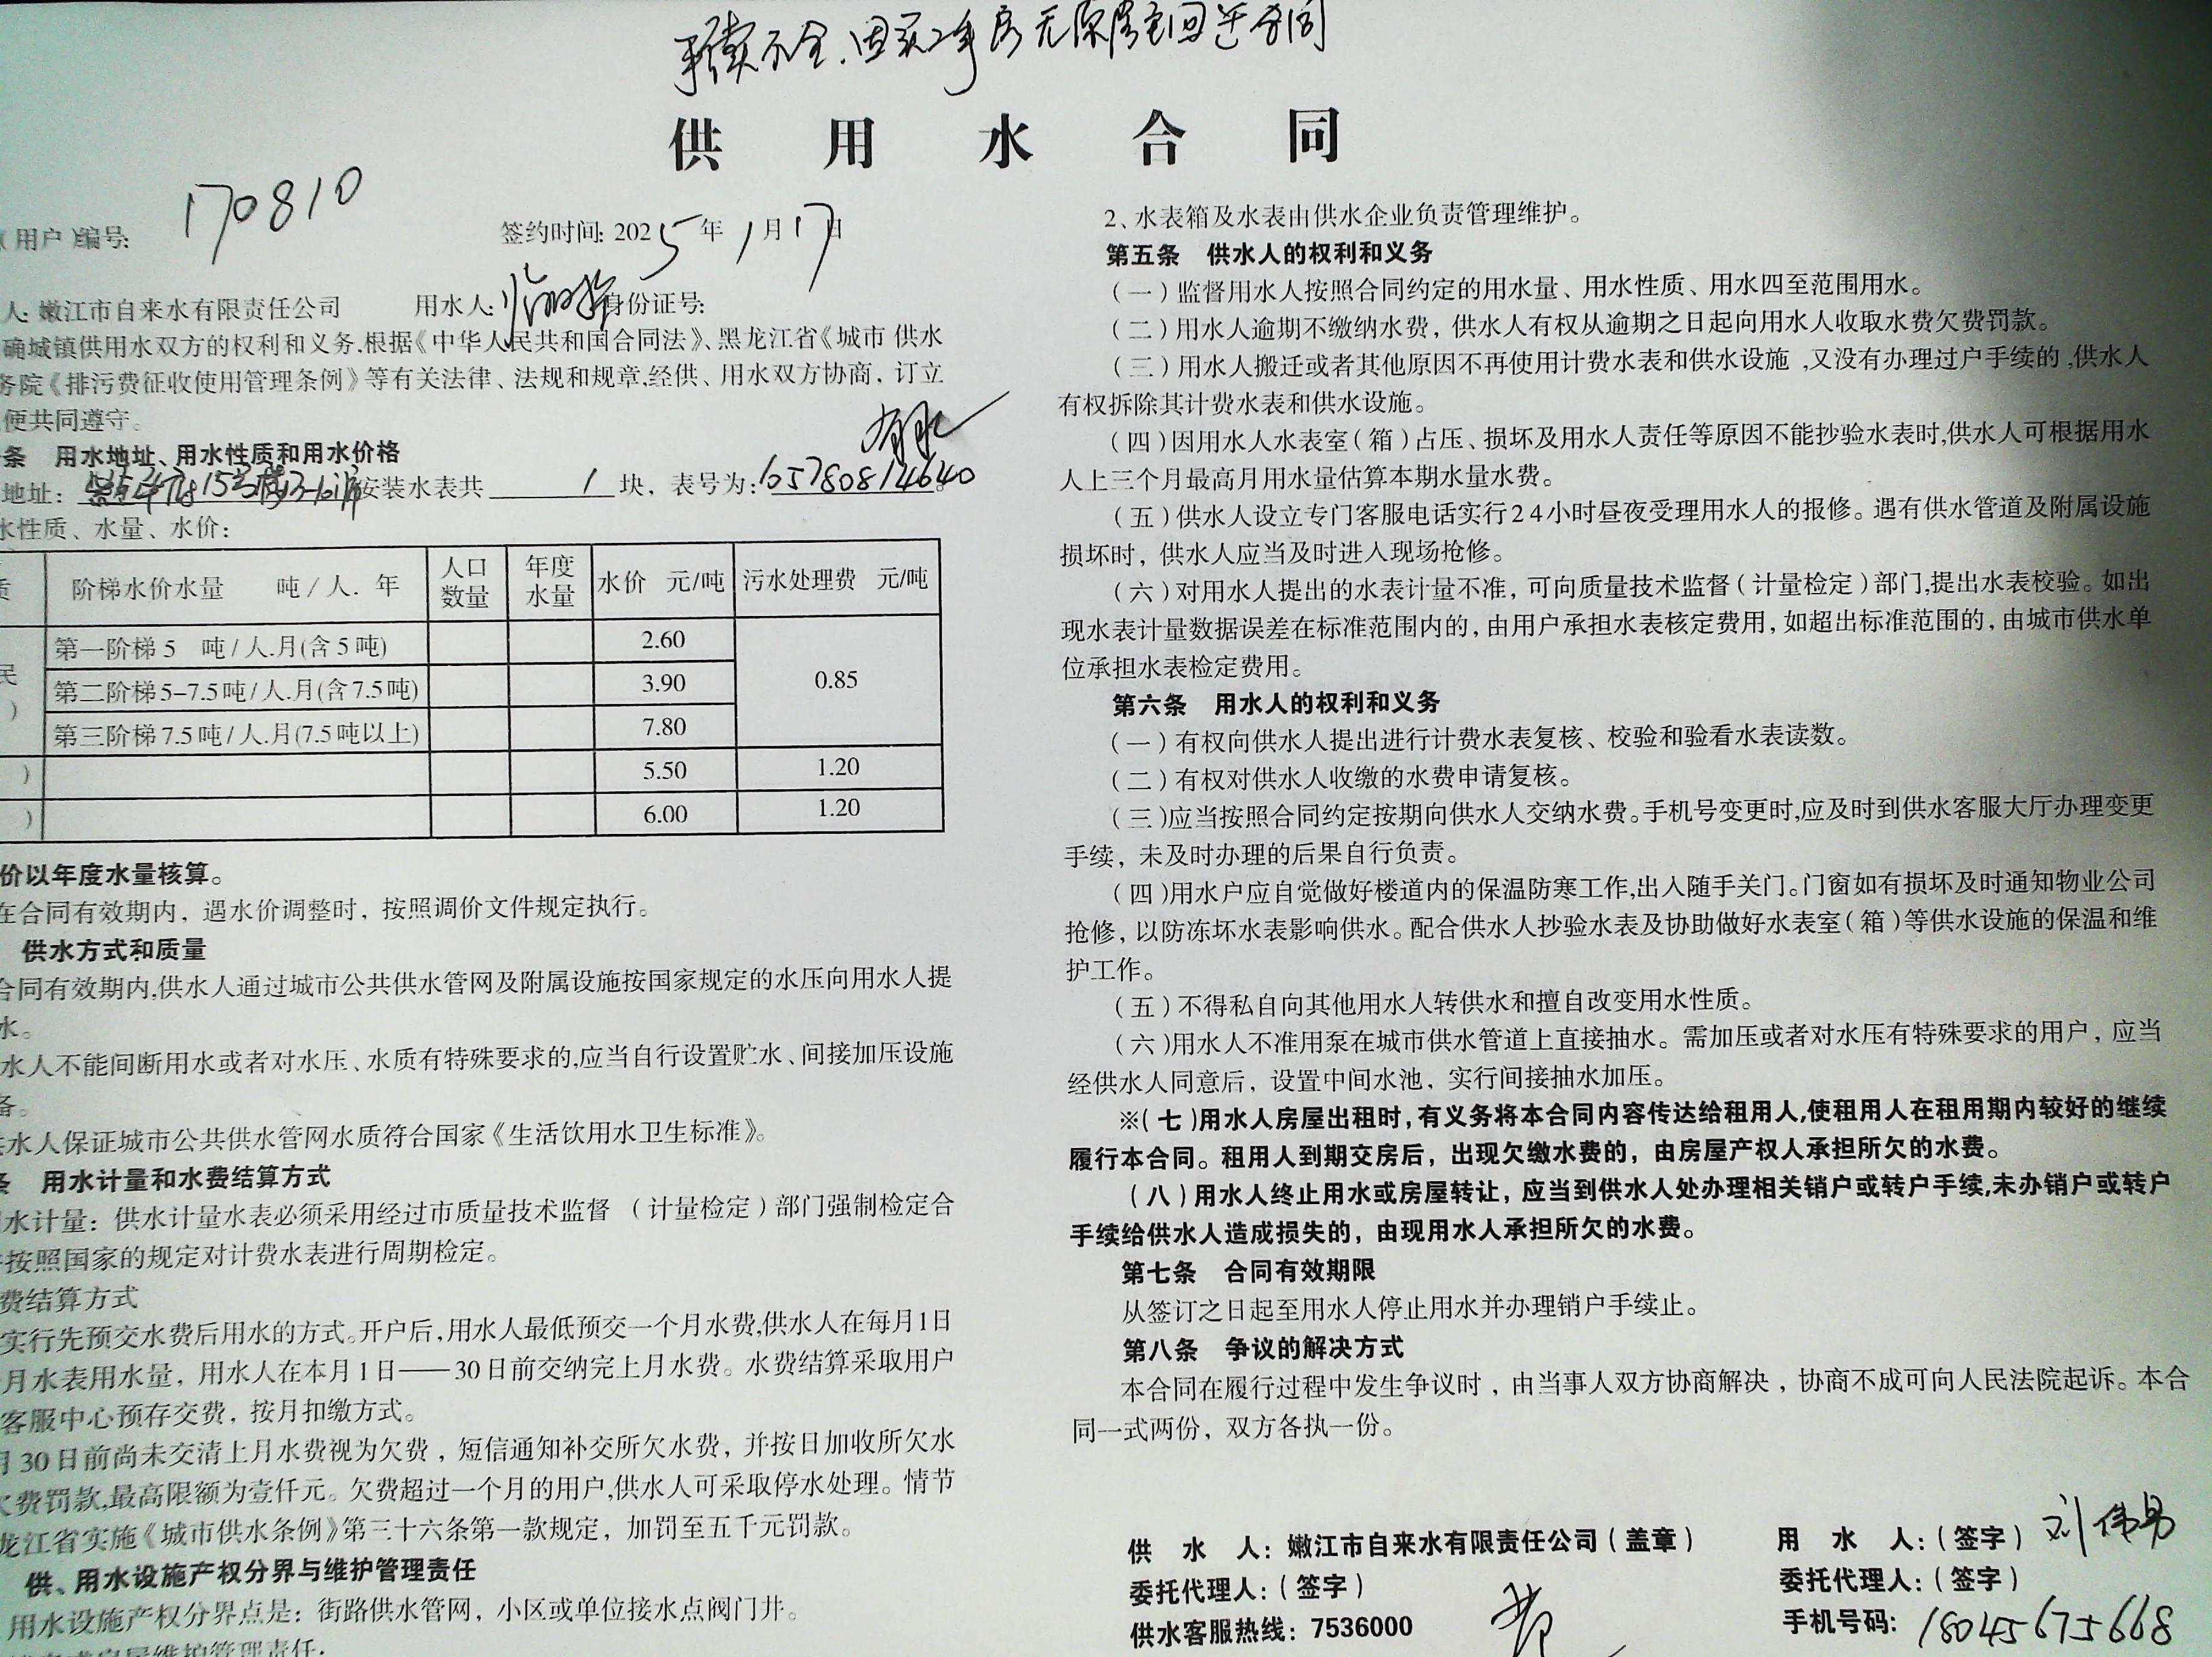 手续不全.因买2手房无原房主回迁合同
供 用 水 合 同
(用户)编号: 170810
签约时间: 2025年1月17日
人: 嫩江市自来水有限责任公司 用水人: 身份证号:
确城镇供用水双方的权利和义务,根据《中华人民共和国合同法》、黑龙江省《城市 供水
务院《排污费征收使用管理条例》等有关法律、法规和规章,经供、用水双方协商，订立
便共同遵守。
条 用水地址、用水性质和用水价格
地址: 15号楼3-601 安装水表共 1 块，表号为: 65780814640
水性质、水量、水价:
质 阶梯水价水量 吨/人.年 人口数量 年度水量 水价 元/吨 污水处理费 元/吨
民 第一阶梯5 吨/人.月(含5吨) 2.60 0.85
第二阶梯5-7.5吨/人.月(含7.5吨) 3.90
) 第三阶梯7.5吨/人.月(7.5吨以上) 7.80
) 5.50 1.20
) 6.00 1.20
价以年度水量核算。
在合同有效期内，遇水价调整时，按照调价文件规定执行。
供水方式和质量
合同有效期内,供水人通过城市公共供水管网及附属设施按国家规定的水压向用水人提
水。
水人不能间断用水或者对水压、水质有特殊要求的,应当自行设置贮水、间接加压设施
备。
水人保证城市公共供水管网水质符合国家《生活饮用水卫生标准》。
条 用水计量和水费结算方式
水计量：供水计量水表必须采用经过市质量技术监督 (计量检定)部门强制检定合
按照国家的规定对计费水表进行周期检定。
费结算方式
实行先预交水费后用水的方式。开户后,用水人最低预交一个月水费,供水人在每月1日
月水表用水量，用水人在本月1日——30日前交纳完上月水费。水费结算采取用户
客服中心预存交费，按月扣缴方式。
月30日前尚未交清上月水费视为欠费，短信通知补交所欠水费，并按日加收所欠水
欠费罚款,最高限额为壹仟元。欠费超过一个月的用户,供水人可采取停水处理。情节
龙江省实施《城市供水条例》第三十六条第一款规定，加罚至五千元罚款。
供、用水设施产权分界与维护管理责任
用水设施产权分界点是：街路供水管网，小区或单位接水点阀门井。
维护管理责任:
2、水表箱及水表由供水企业负责管理维护。
第五条 供水人的权利和义务
(一)监督用水人按照合同约定的用水量、用水性质、用水四至范围用水。
(二)用水人逾期不缴纳水费，供水人有权从逾期之日起向用水人收取水费欠费罚款。
(三)用水人搬迁或者其他原因不再使用计费水表和供水设施,又没有办理过户手续的,供水人
有权拆除其计费水表和供水设施。
(四)因用水人水表室(箱)占压、损坏及用水人责任等原因不能抄验水表时,供水人可根据用水
人上三个月最高月用水量估算本期水量水费。
(五)供水人设立专门客服电话实行24小时昼夜受理用水人的报修。遇有供水管道及附属设施
损坏时，供水人应当及时进入现场抢修。
(六)对用水人提出的水表计量不准，可向质量技术监督(计量检定)部门,提出水表校验。如出
现水表计量数据误差在标准范围内的，由用户承担水表核定费用，如超出标准范围的，由城市供水单
位承担水表检定费用。
第六条 用水人的权利和义务
(一)有权向供水人提出进行计费水表复核、校验和验看水表读数。
(二)有权对供水人收缴的水费申请复核。
(三)应当按照合同约定按期向供水人交纳水费。手机号变更时,应及时到供水客服大厅办理变更
手续，未及时办理的后果自行负责。
(四)用水户应自觉做好楼道内的保温防寒工作,出入随手关门。门窗如有损坏及时通知物业公司
抢修，以防冻坏水表影响供水。配合供水人抄验水表及协助做好水表室(箱)等供水设施的保温和维
护工作。
(五)不得私自向其他用水人转供水和擅自改变用水性质。
(六)用水人不准用泵在城市供水管道上直接抽水。需加压或者对水压有特殊要求的用户，应当
经供水人同意后，设置中间水池，实行间接抽水加压。
※(七)用水人房屋出租时,有义务将本合同内容传达给租用人,使租用人在租用期内较好的继续
履行本合同。租用人到期交房后，出现欠缴水费的，由房屋产权人承担所欠的水费。
(八)用水人终止用水或房屋转让，应当到供水人处办理相关销户或转户手续,未办销户或转户
手续给供水人造成损失的，由现用水人承担所欠的水费。
第七条 合同有效期限
从签订之日起至用水人停止用水并办理销户手续止。
第八条 争议的解决方式
本合同在履行过程中发生争议时，由当事人双方协商解决，协商不成可向人民法院起诉。本合
同一式两份，双方各执一份。
供 水 人：嫩江市自来水有限责任公司(盖章) 用 水 人:(签字) 刘伟男
委托代理人:(签字) 委托代理人:(签字)
供水客服热线：7536000 手机号码: 18045675668